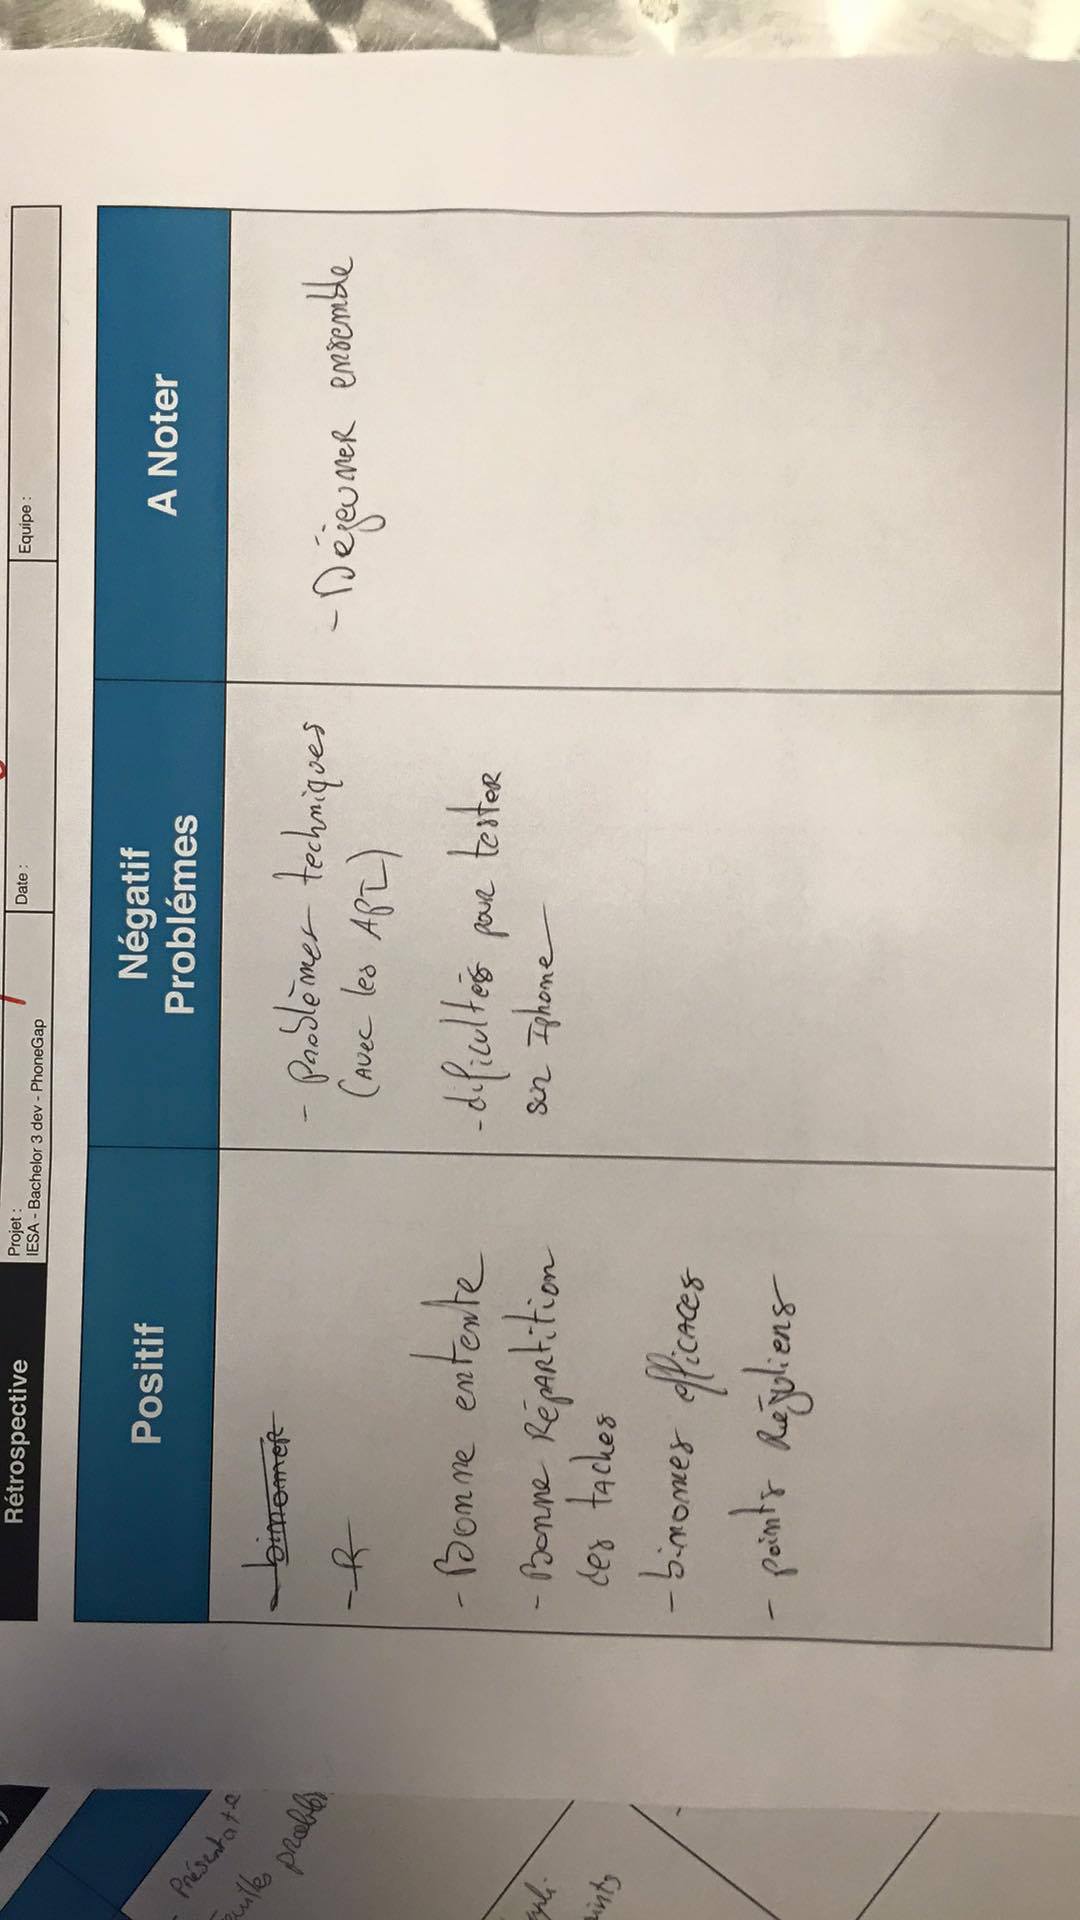 Rétrospective
Projet :
IESA - Bachelor 3 dev - PhoneGap
Date :
Equipe :
Positif
Négatif
Problémes
A Noter
- binomes
- R
- Bonne entente
- Bonne Répartition
des taches
- binomes efficaces
- points Réguliers
- Problèmes techniques
(avec les API)
- dificultés pour tester
sur Iphone
- Déjeuner ensemble
Présentate
problè